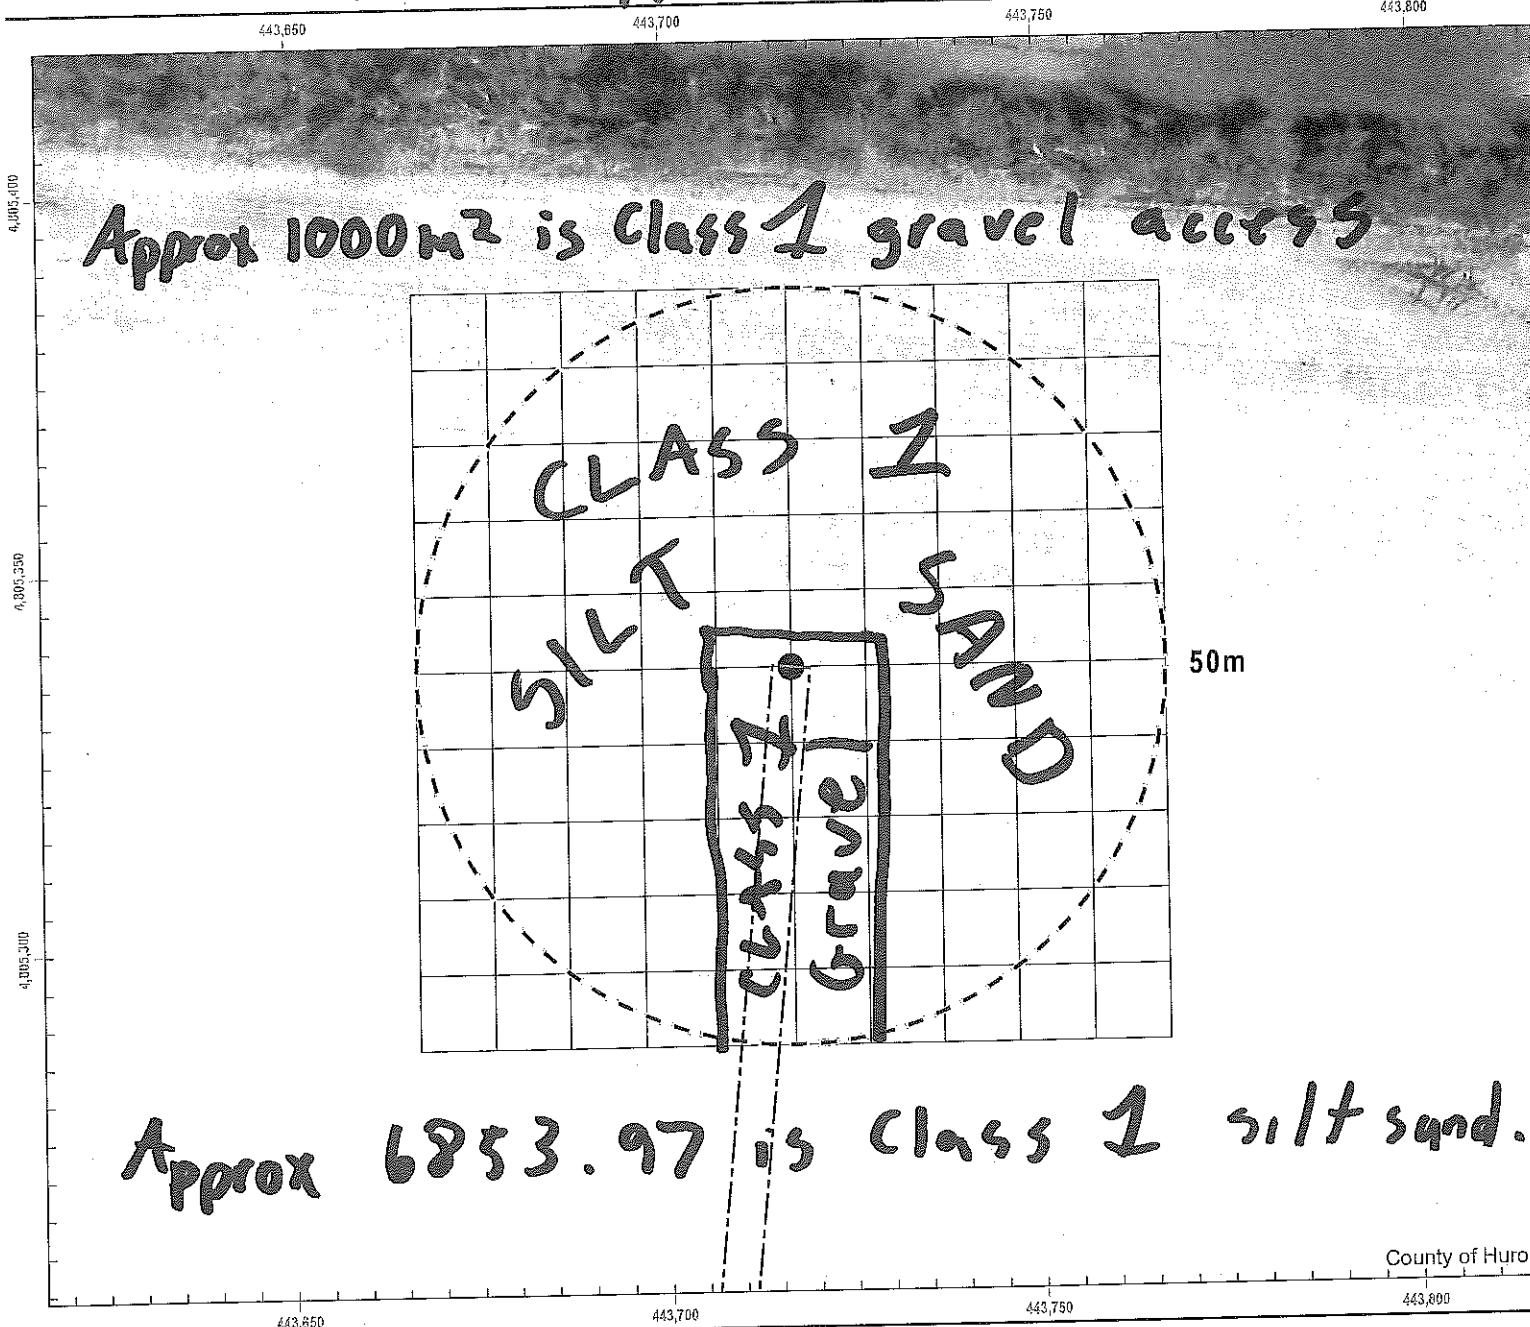 443,650 443,700 443,750 443,800
4,805,400
Approx 1000m² is Class 1 gravel access
CLASS 1
4,805,350
SILT SAND
50m
CLASS 1
Gravel
4,805,300
Approx 6853.97 is Class 1 silt sand.
County of Huro
443,650 443,700 443,750 443,800